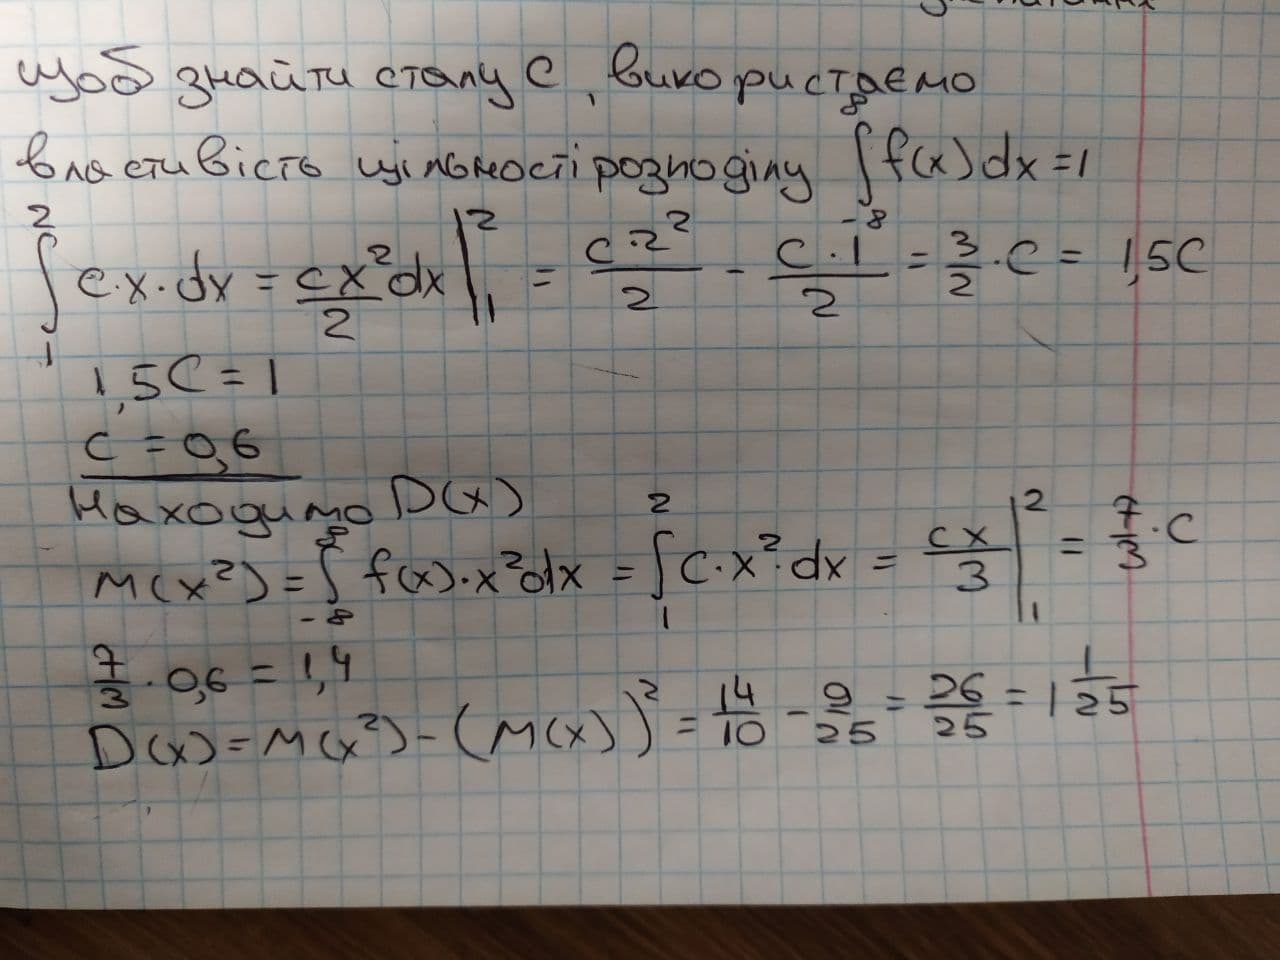 Щоб знайти сталу C, використаємо
властивість щільності розподілу ∫_{-∞}^{∞} f(x)dx=1
∫_1^2 c·x·dx = cx²/2 dx |_1^2 = c·2²/2 - c·1/2 = 3/2·C = 1,5C
1,5C=1
c=0,6
Находимо D(x)
M(x²)=∫_{-∞}^{∞} f(x)·x²dx = ∫_1^2 c·x²·dx = cx/3 |_1^2 = 7/3·C
7/3·0,6=1,4
D(x)=M(x²)-(M(x))²=14/10-9/25=26/25=1 1/25